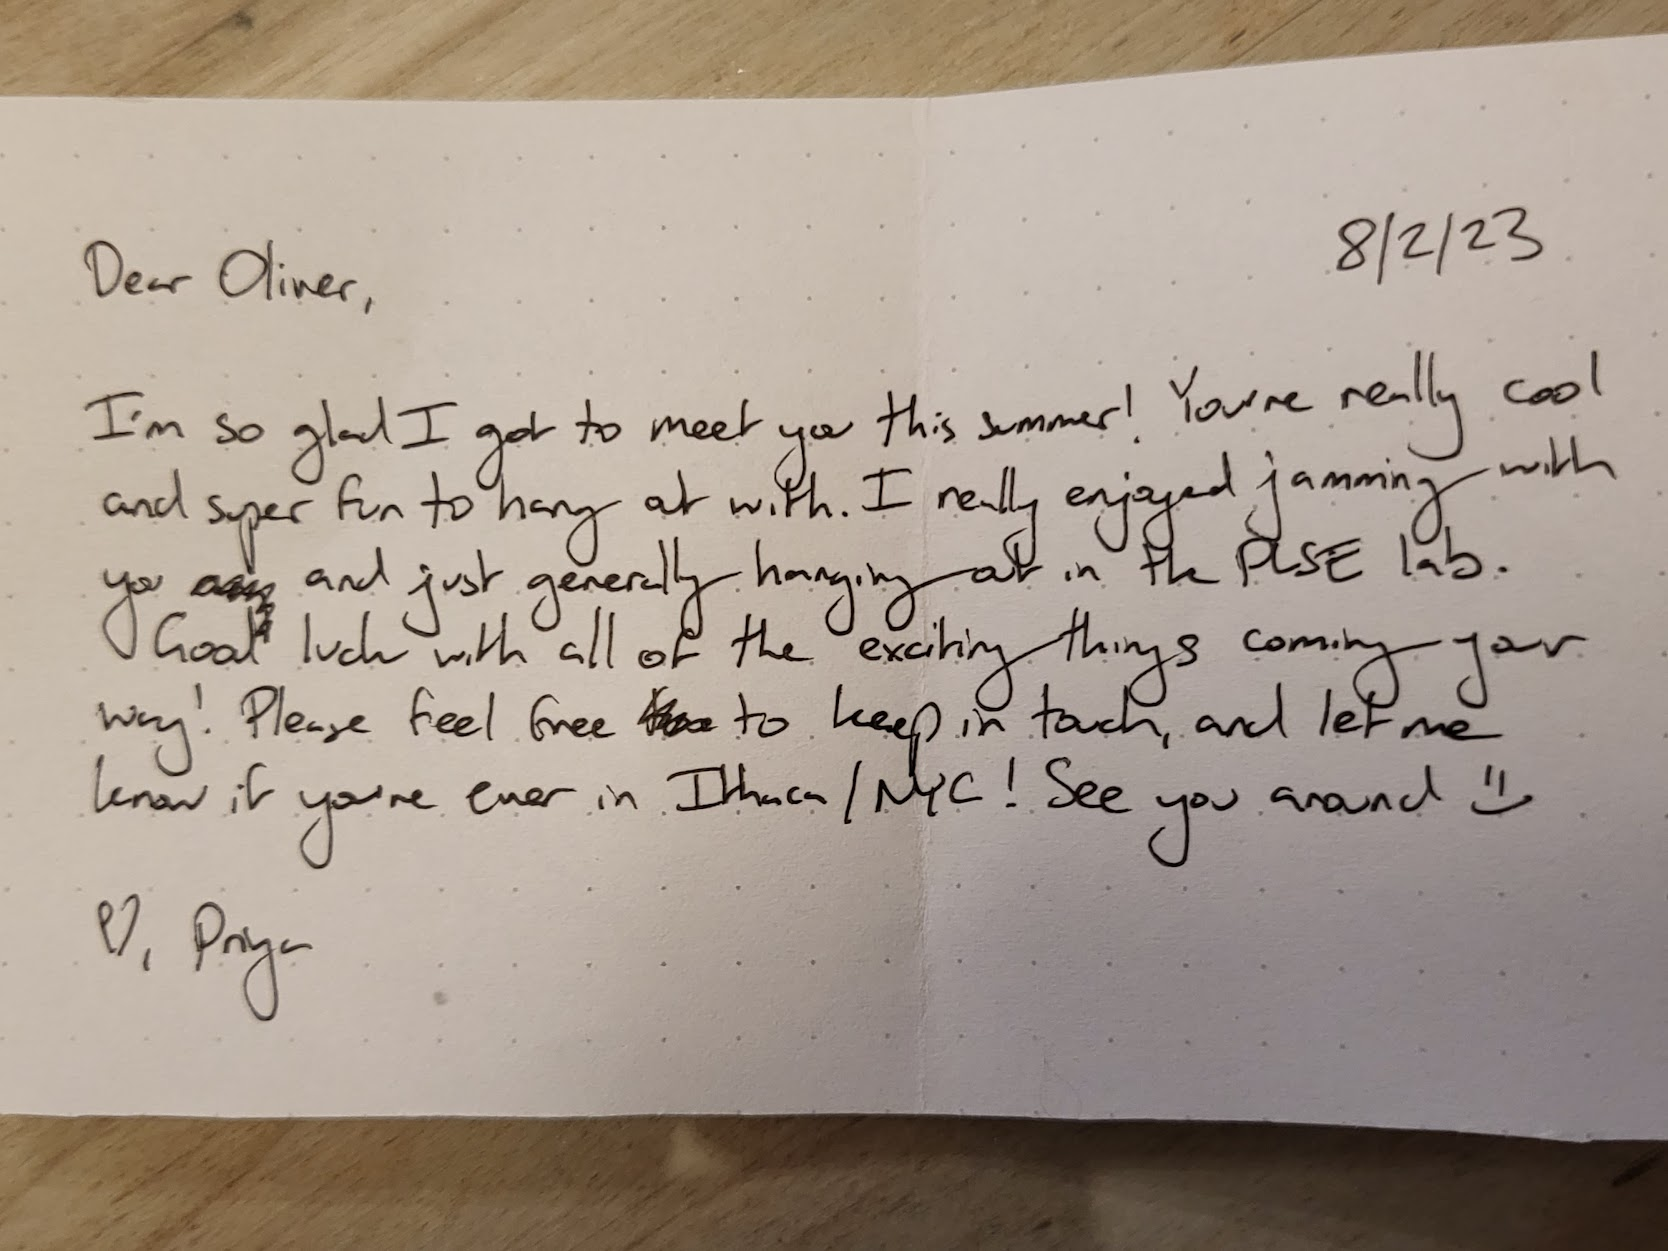 8/2/23
Dear Oliver,
I'm so glad I got to meet you this summer! You're really cool
and super fun to hang out with. I really enjoyed jamming with
you and just generally hanging out in the PLSE lab.
Good luck with all of the exciting things coming your
way! Please feel free to keep in touch, and let me
know if you're ever in Ithaca/NYC! See you around :)
♡, Priya